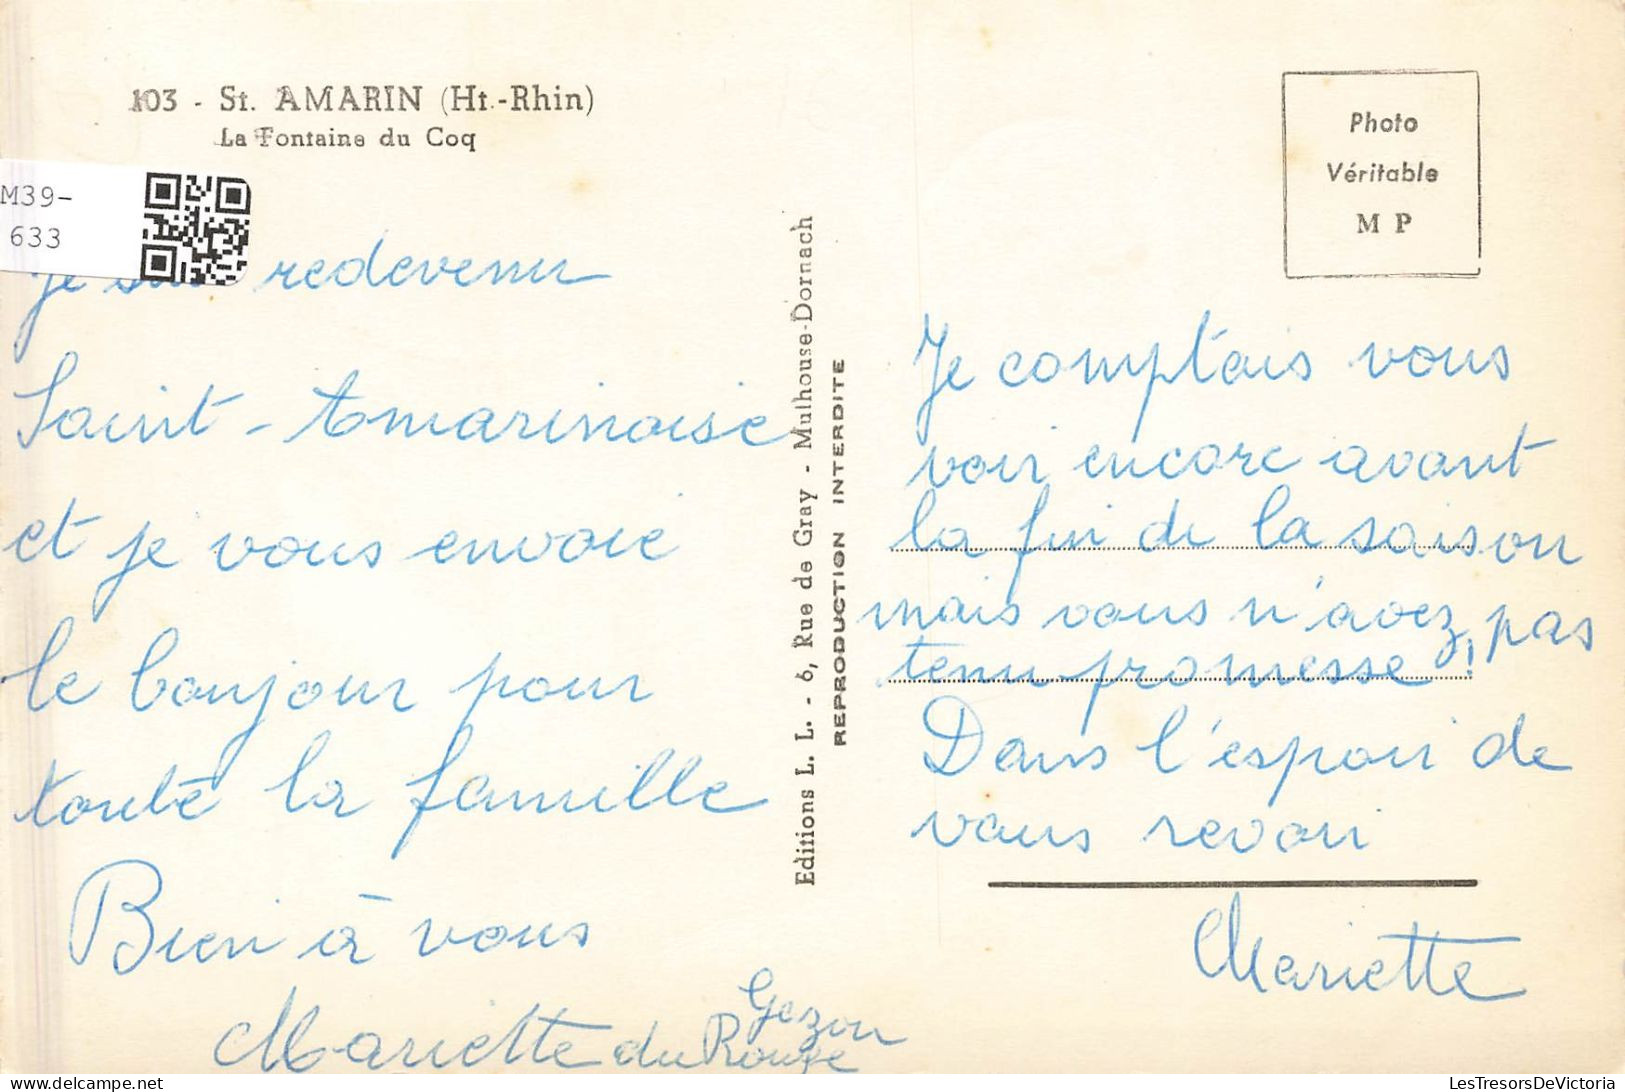 103 - St. AMARIN (Ht.-Rhin)
La Fontaine du Coq
M39-
633
Je suis redevenu
Saint-Amarinoise
et je vous envoie
le bonjour pour
toute la famille
Bien à vous
Mariette du Rouge
Gezon
Editions L. L. - 6, Rue de Gray - Mulhouse-Dornach
REPRODUCTION INTERDITE
Photo
Véritable
M P
Je comptais vous
voir encore avant
la fin de la saison
mais vous n'avez pas
tenu promesse!
Dans l'espoir de
vous revoir
Mariette
LesTresorsDeVictoria